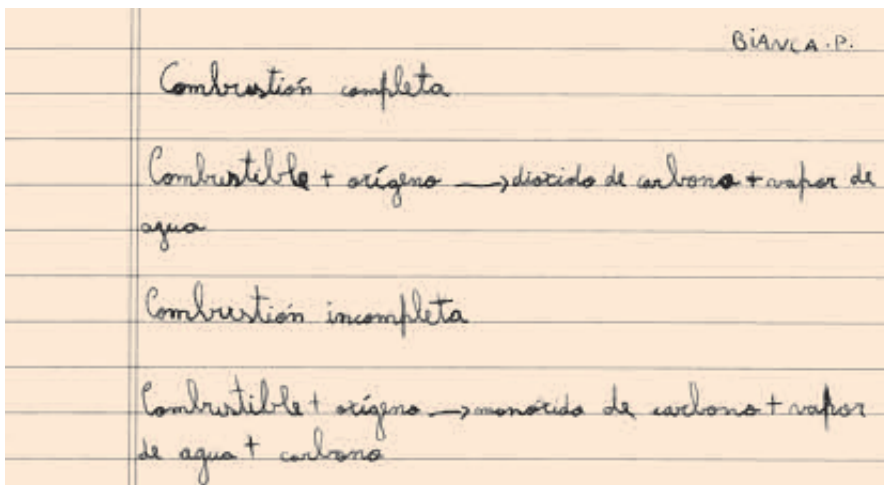 BIANCA.P.
Combustión completa
Combustible + oxígeno → dioxido de carbono + vapor de
agua
Combustión incompleta
Combustible + oxígeno → monóxido de carbono + vapor
de agua + carbono